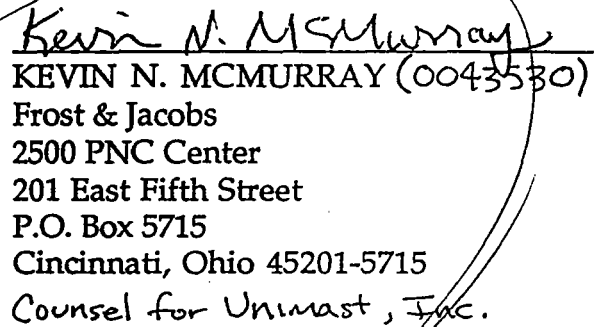 Kevin N. McMurray
KEVIN N. MCMURRAY (0043530)
Frost & Jacobs
2500 PNC Center
201 East Fifth Street
P.O. Box 5715
Cincinnati, Ohio 45201-5715
Counsel for Unimast, Inc.